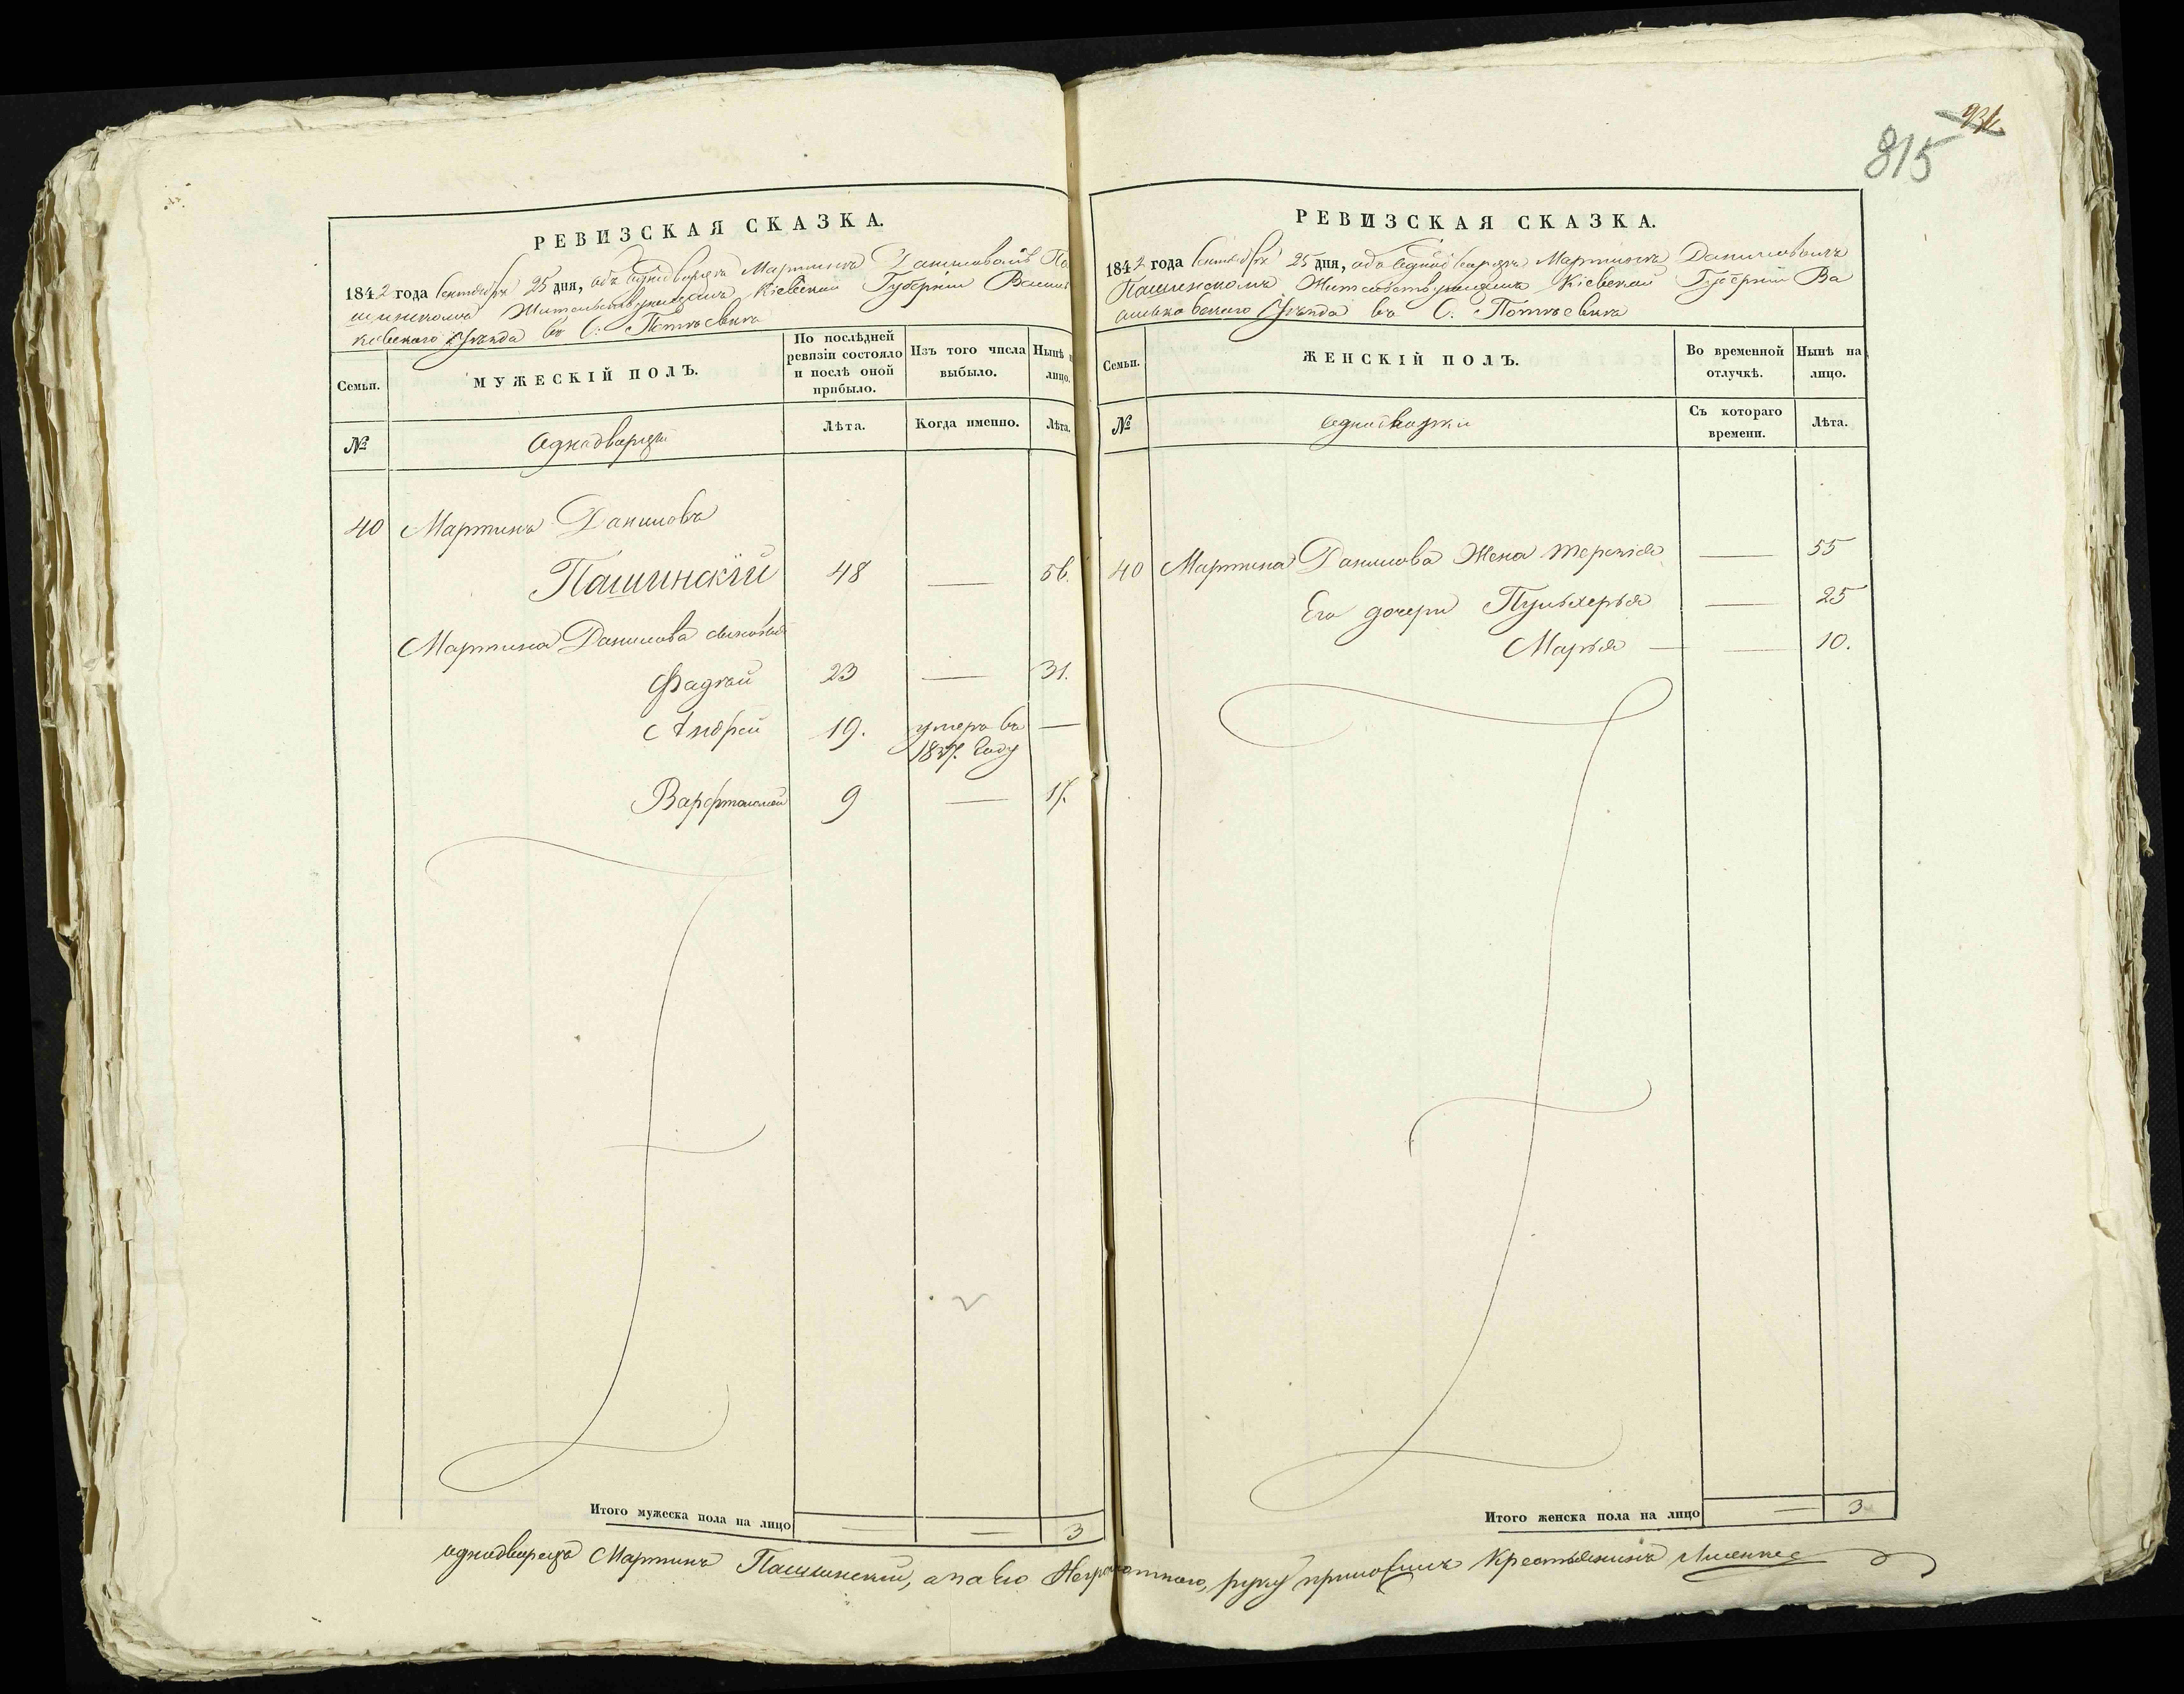 815
РЕВИЗСКАЯ СКАЗКА.
1842 года Сентября 25 дня, объ Однодворцѣ Мартинѣ Даниловомъ Па
шинскомъ Жительствующемъ Кіевской Губерніи Василь
ковскаго Уѣзда въ С.
Семьи.
МУЖЕСКІЙ ПОЛЪ.
По послѣдней ревизіи состояло и послѣ оной прибыло.
Изъ того числа выбыло.
Нынѣ на лицо.
№
Однодворцы
Лѣта.
Когда именно.
Лѣта.
40 Мартинъ Даниловъ
Пашинскій 48 — 56.
Мартина Данилова сыновья
Фадѣй 23 — 31.
Андрей 19. умеръ въ —
1837. Году
Варфтоломей 9 — 17.
Итого мужеска пола на лицо — — 3
РЕВИЗСКАЯ СКАЗКА.
1842 года Сентября 25 дня, объ Однодворцѣ Мартинѣ Даниловомъ
Пашинскомъ Жительствующемъ Кіевской Губерніи Ва
сильковскаго Уѣзда въ С.
Семьи.
ЖЕНСКІЙ ПОЛЪ.
Во временной отлучкѣ.
Нынѣ на лицо.
№
Однодворки
Съ котораго времени.
Лѣта.
40 Мартина Данилова Жена Терезія — 55
Его дочери Пульхерья — 25
Марья — — 10.
Итого женска пола на лицо — 3
однодворецъ Мартинъ Пашинскій, а за его Неграмотнаго, руку приложилъ Крестьянинъ